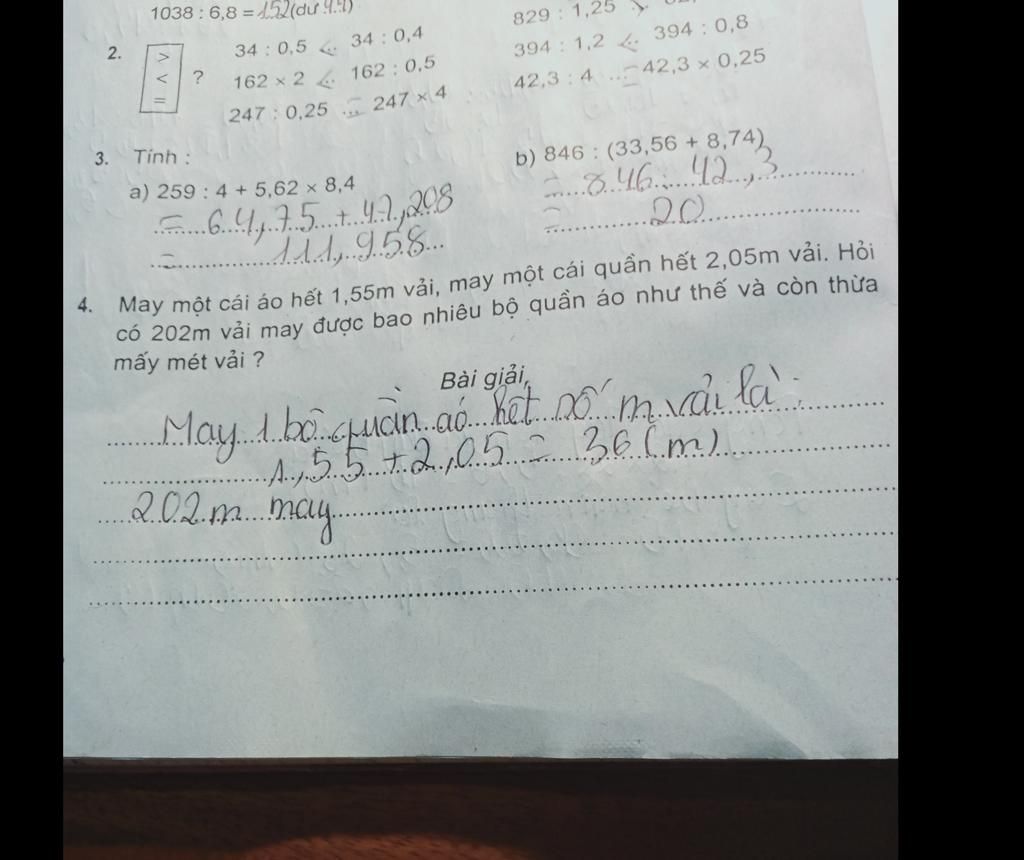 1038 : 6,8 = 152 (dư 4,4)
829 : 1,25
2. > < = ?
34 : 0,5 < 34 : 0,4
394 : 1,2 < 394 : 0,8
162 × 2 < 162 : 0,5
42,3 : 4 ... = 42,3 × 0,25
247 : 0,25 ... = 247 × 4
3. Tính :
a) 259 : 4 + 5,62 × 8,4
= 64,75 + 47,208
= 111,958
b) 846 : (33,56 + 8,74)
= 846 : 42,3
= 20
4. May một cái áo hết 1,55m vải, may một cái quần hết 2,05m vải. Hỏi
có 202m vải may được bao nhiêu bộ quần áo như thế và còn thừa
mấy mét vải ?
Bài giải
May 1 bộ quần aó hết số m vải là :
1,55 + 2,05 = 36 (m)
202m may